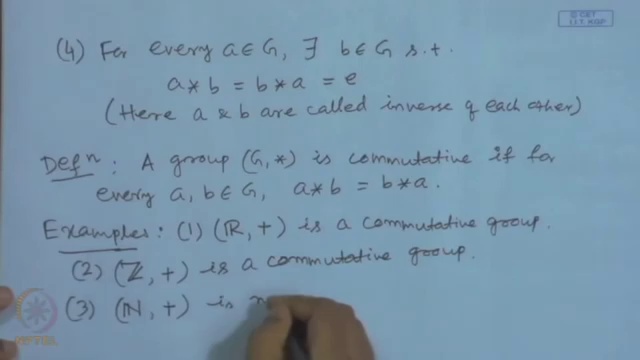 © CET
I.I.T. KGP
(4) For every a ∈ G, ∃ b ∈ G s.t.
a * b = b * a = e
(Here a & b are called inverse of each other)
Defⁿ : A group (G, *) is commutative if for
every a, b ∈ G, a * b = b * a.
Examples : (1) (ℝ, +) is a commutative group.
(2) (ℤ, +) is a commutative group.
(3) (ℕ, +) is n
NPTEL